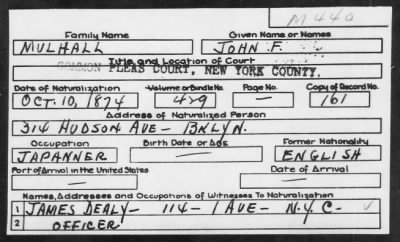 M 440
Family Name Given Name or Names
MULHALL JOHN F.
Title and Location of Court
COMMON PLEAS COURT, NEW YORK COUNTY.
Date of Naturalization Volume or Bundle No. Page No. Copy of Record No.
OCT. 10, 1874 429 — 161
Address of Naturalized Person
314 HUDSON AVE – BKLYN.
Occupation Birth Date or Age Former Nationality
JAPANNER — ENGLISH
Port of Arrival in the United States Date of Arrival
— —
Names, Addresses and Occupations of Witnesses To Naturalization
1 JAMES DEALY – 114 – 1 AVE – N.Y.C –
2 OFFICER